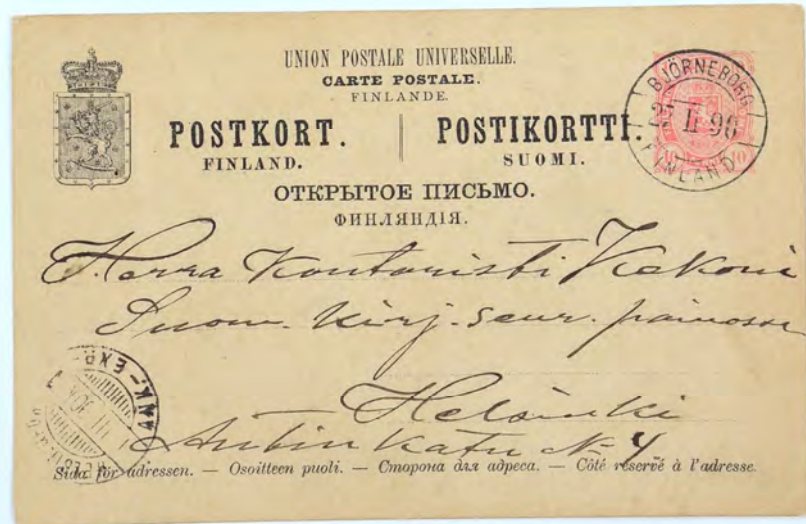 UNION POSTALE UNIVERSELLE.
CARTE POSTALE.
FINLANDE.
POSTKORT. POSTIKORTTI.
FINLAND. SUOMI.
ОТКРЫТОЕ ПИСЬМО.
ФИНЛЯНДІЯ.
BJÖRNEBORG
II 96
FINLAND
10 10
Herra Kontoristi Kekoni
Suom. Kirj. seur. painossa
Helsinki
Antinkatu No 4
ANK.-EXP.
Sida för adressen. — Osoitteen puoli. — Сторона для адреса. — Côté réservé à l'adresse.